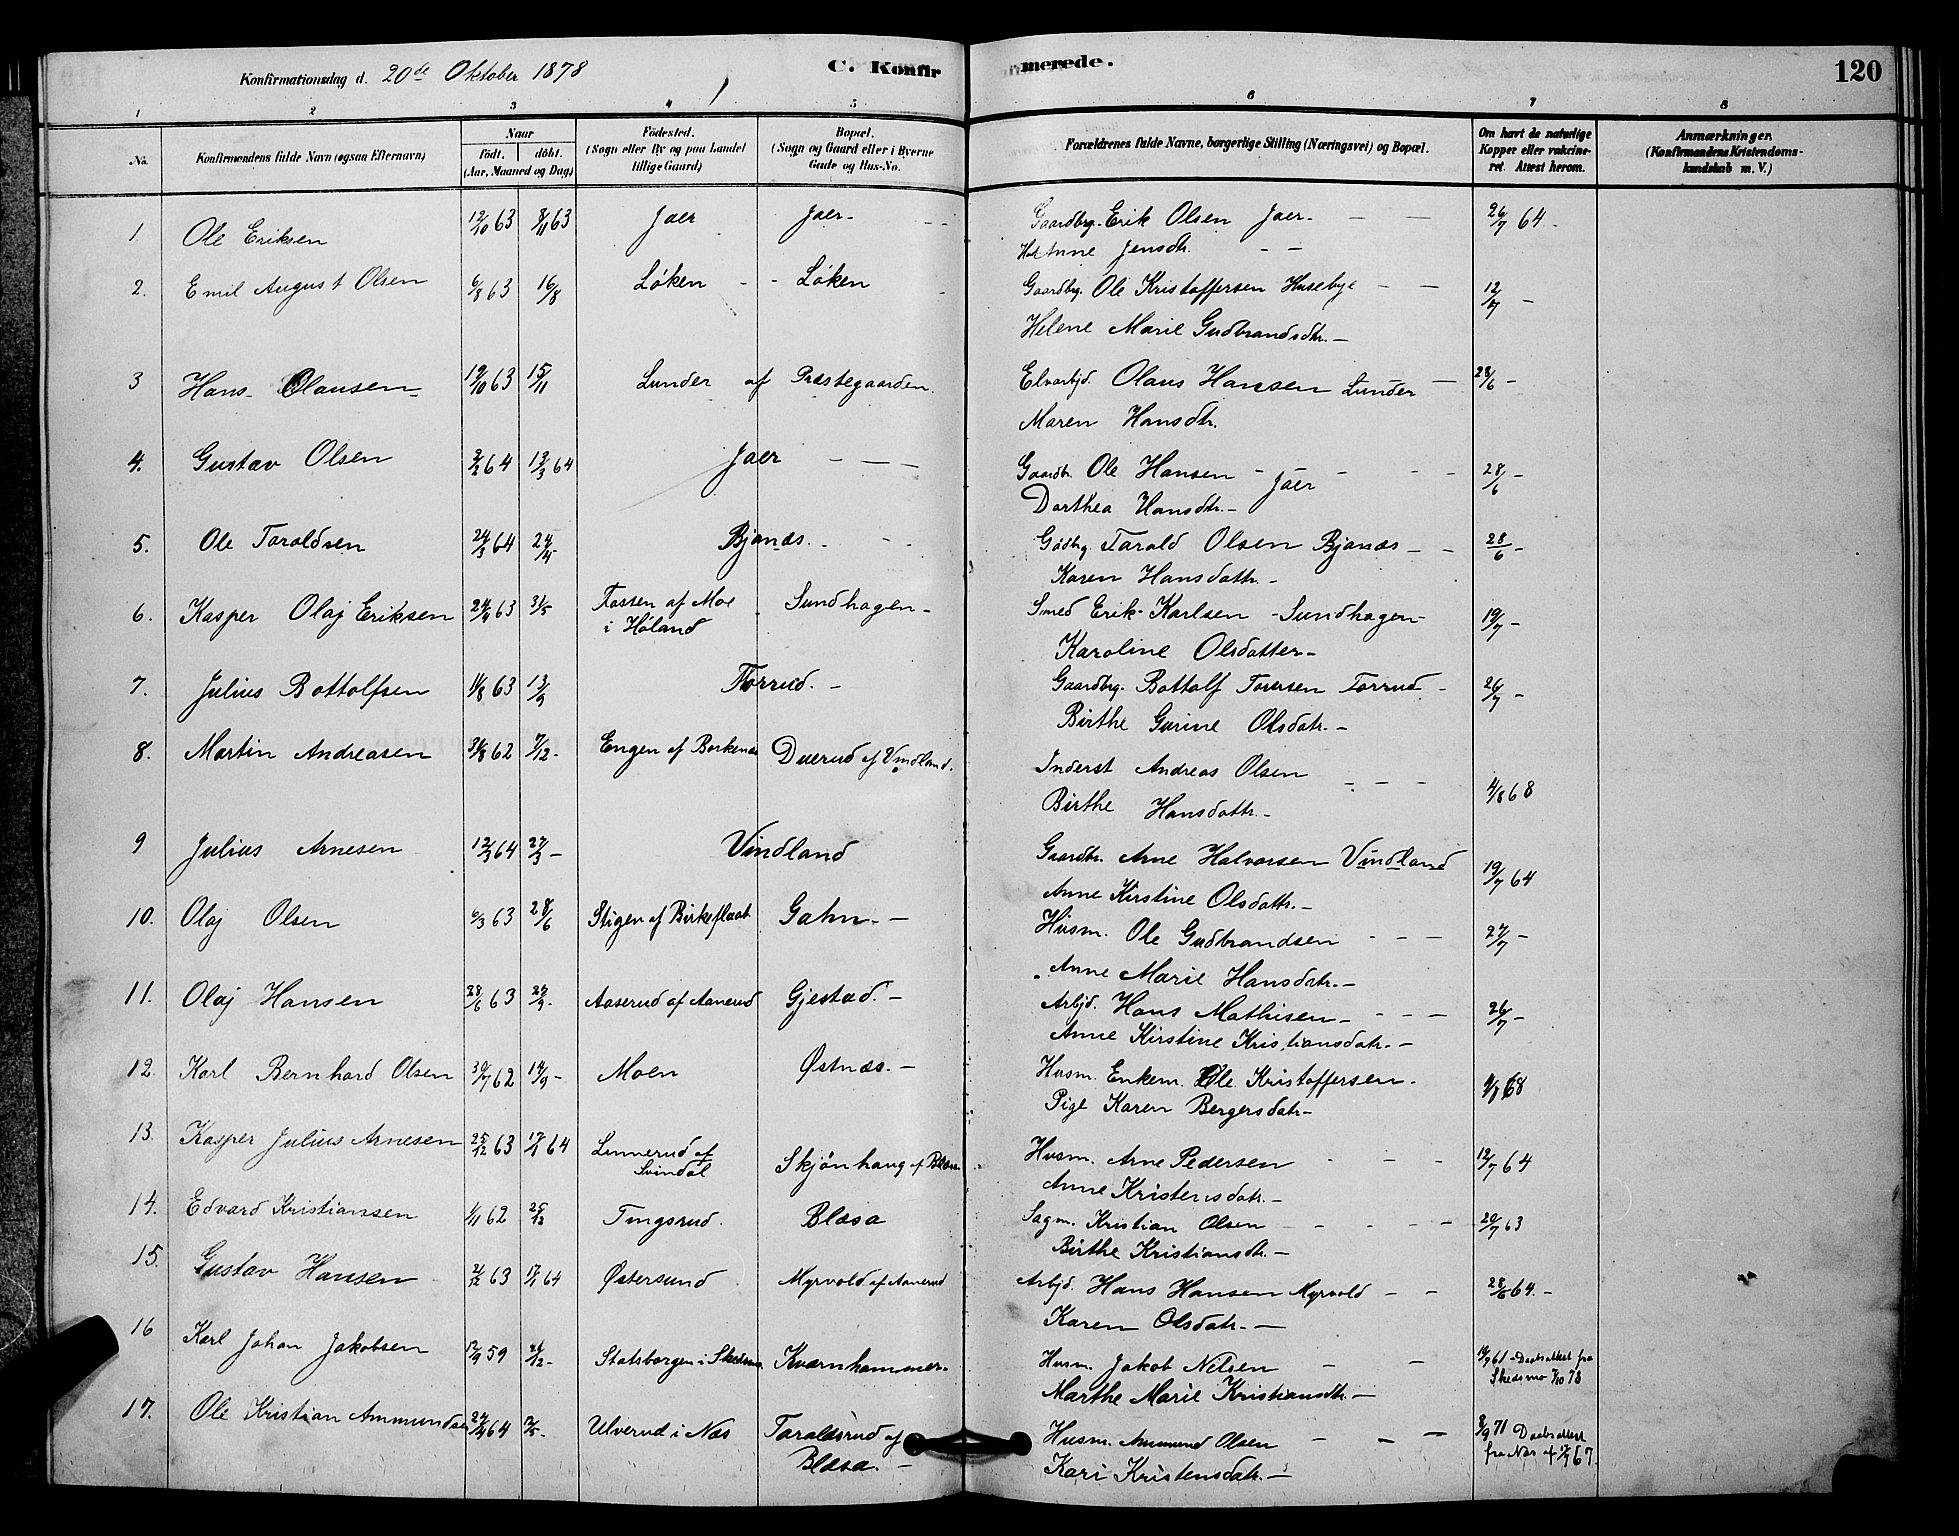 Konfirmationsdag d. 20de Oktober 1878
C. Konfirmerede.
120
1 2 3 4 5 6 7 8
No.
Konfirmandens fulde Navn (ogsaa Efternavn)
Naar
Födt. döbt.
(Aar, Maaned og Dag)
Födested.
(Sogn eller By og paa Landet tillige Gaard)
Bopæl.
(Sogn og Gaard eller i Byerne Gade og Hus-No.
Forældrenes fulde Navne, borgerlige Stilling (Næringsvei) og Bopæl.
Om havt de naturlige Kopper eller vakcineret. Attest herom.
Anmærkninger.
(Konfirmandens Kristendomskundskab m. V.)
1. Ole Eriksen 12/10 63 8/11 63 Jaer Jaer - Gaardbrg. Erik Olsen Jaer - 26/7 64 -
Anne Jensdtr.
2. Emil August Olsen 6/8 63 16/8 Løken - - Løken Gaardbrg. Ole Kristoffersen Husebye 12/7 -
Helene Marie Gudbrandsdtr. -
3 Hans Olausen 19/10 63 15/11 Lunder af Præstegaarden. Elvarbjd. Olaus Hansen Lunder 28/6 -
Maren Hansdtr.
4. Gustav Olsen 2/2 64 13/3 64 Jaer - - - Gaardbr. Ole Hansen - Jaer - 28/6 -
Dorthea Hansdtr. -
5. Ole Taraldsen 24/3 64 24/4 Bjanæs. Gdbrg Tarald Olsen Bjanæs - 28/6 -
Karen Hansdattr. -
6. Kasper Olaj Eriksen 24/4 63 31/5 Tassen af Moe i Høland Sundhagen - Smed Erik Karlsen - Sundhagen - 19/7 -
Karoline Olsdatter -
7. Julius Bottolfsen 11/8 63 13/9 Torrud. - Gaardbrg. Bottolf Toversen Torrud - 26/7 -
Birthe Gurine Olsdatr. -
8. Martin Andreasen 31/8 62 7/12 - Engen af Borkenæs Duerud af Vindland. Inderst Andreas Olsen 4/8 68
Birthe Hansdattr. -
9 Julius Arnesen 12/3 64 27/3 - Vindland Gaardbr. Arne Halvorsen Vindland 19/7 64
Anne Kirstine Olsdattr. -
10. Olaj Olsen 6/3 63 28/6 Stigen af Birkeflaat Gahn. - Husm. Ole Gudbrandsen - - - 27/7 -
Anne Marie Hansdatr. -
11. Olaj Hansen 28/6 63 27/9 - Aaserud af Aanerud Gjestad. - Arbjd. Hans Mathisen - - - 26/7 -
Anne Kirstine Kristiansdatr. -
12. Karl Bernhard Olsen 30/7 62 14/9 - Moen Østnæs. - Husm. Enkem. Ole Kristoffersen. 4/8 68
Pige Karen Bergersdatr -
13. Kasper Julius Arnesen 25/12 63 17/1 64 Linnerud af Svindal Skjønhaug af Blæsa Husm. Arne Pedersen - - - 12/7 64
Anne Kristensdatr. -
14. Edvard Kristiansen 1/11 62 25/12 Tingsrud. Blæsa Sagm. Kristian Olsen - - - 20/7 63
Birthe Kristiansdtr. -
15. Gustav Hansen 21/12 63 17/1 64 Østersund Myrvold af Aanerud Arbjd. Hans Hansen Myrvold - - 28/6 64. -
Karen Olsdatr. -
16 Karl Johan Jakobsen 12/9 59 26/12 - Statsborgen i Skedsmo Kværnhammer - Husm. Jakob Nilsen - - 61 - Daabsattest fra Skedsmo 7/10 78
Marthe Marie Kristiansdtr. -
17. Ole Kristian Ammundsen 24/4 64 Ulverud i Næs Taraldsrud af Blæsa. - Husm. Ammund Olsen - - - 8/9 71 Daabsattest fra Næs af 67.
Kari Kristensdatr. -